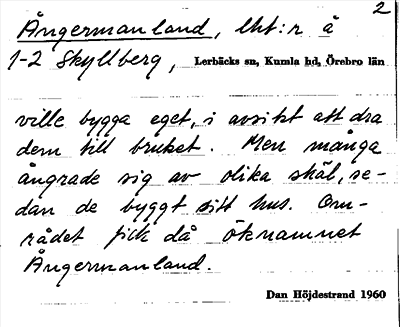 2
Ångermanland, lht:r å
1-2 Skyllberg, Lerbäcks sn, Kumla hd, Örebro län
ville bygga eget, i avsikt att dra
dem till bruket. Men många
ångrade sig av olika skäl, se-
dan de byggt sitt hus. Om-
rådet fick då öknamnet
Ångermanland.
Dan Höjdestrand 1960